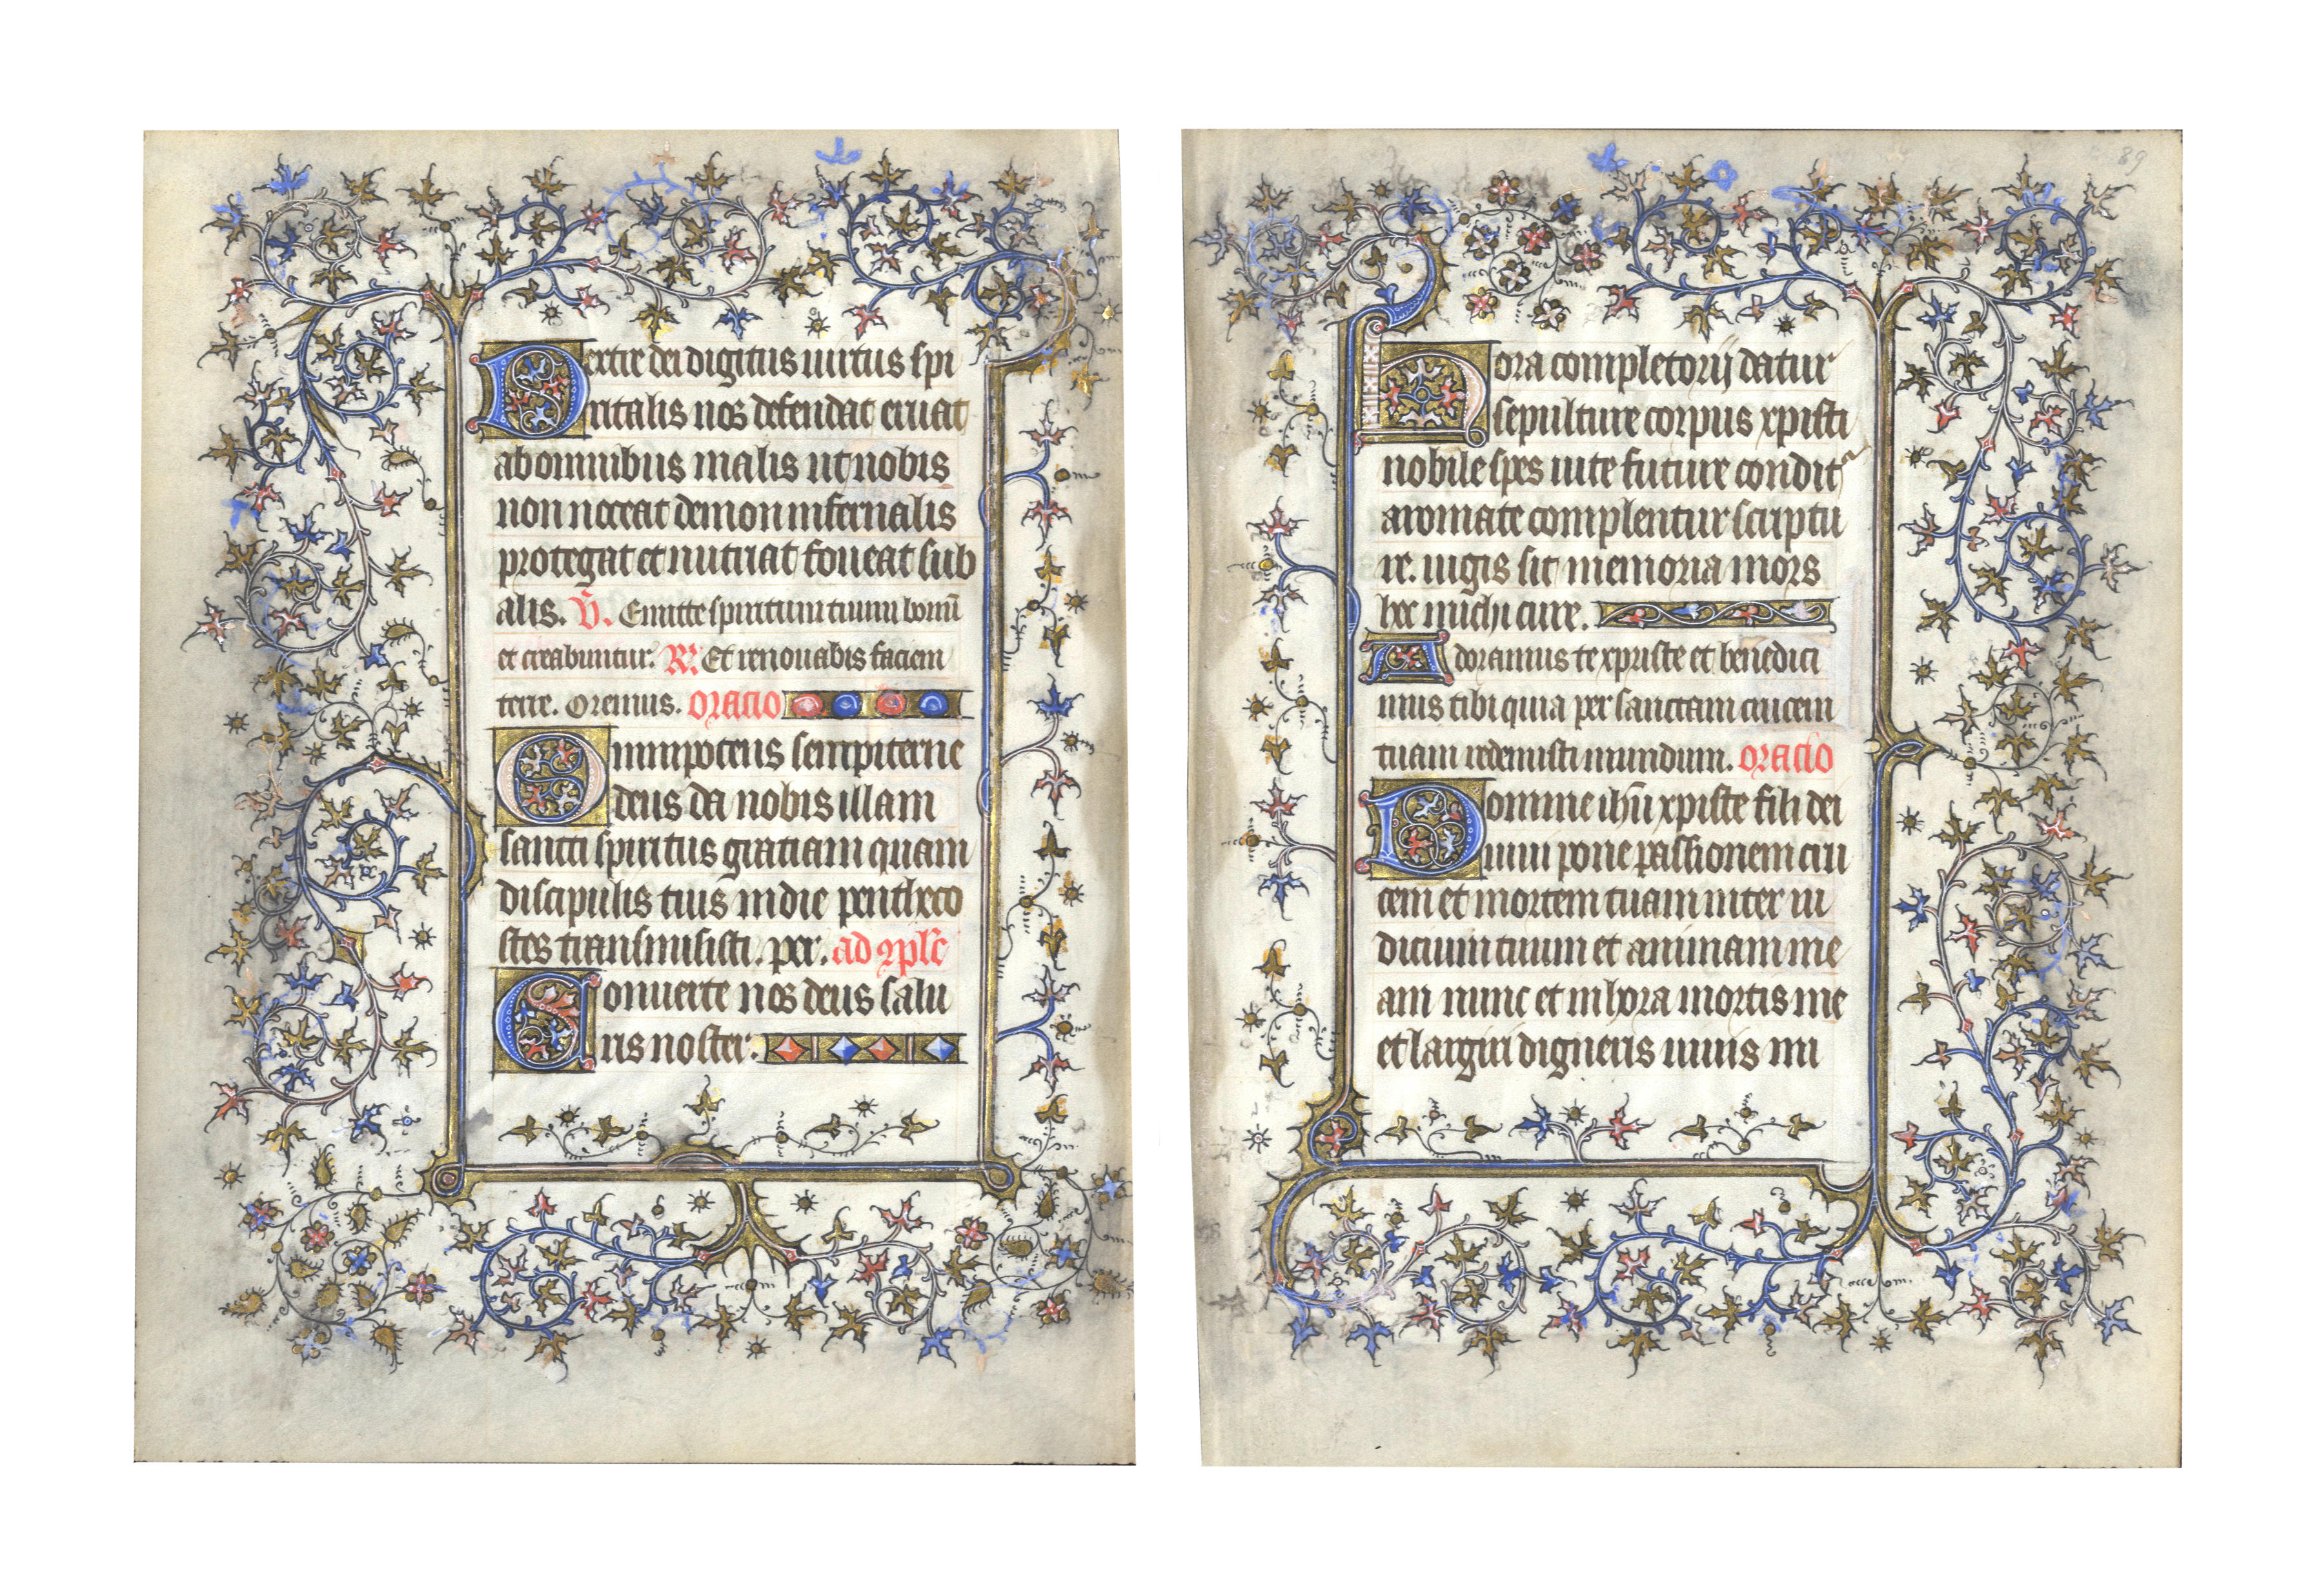 Dextre dei digitus uirtus spi
ritalis nos defendat eruat
ab omnibus malis ut nobis
non noceat demon infernalis
protegat et nutriat foueat sub
alis. V̄. Emitte spiritum tuum bonū
et creabuntur. R. Et renouabis faciem
terre. Oremus. oracio
Omnipotens sempiterne
deus da nobis illam
sancti spiritus gratiam quam
discipulis tuis in die pentheco
stes transmisisti. per. ad ꝯplē
Conuerte nos deus salu
taris noster.
89
Hora completorij datur
sepulture corpus xpisti
nobile spes uite future condit᷑
aromate complentur scriptu
re. iugis sit memoria mors
hec michi cure.
Adoramus te xpriste et benedici
mus tibi quia per sanctam crucem
tuam redemisti mundum. oracio
Domine ihū xpiste fili dei
uiui pone passionem cru
cem et mortem tuam inter iu
dicium tuum et animam me
am nunc et in hora mortis me
et largiri digneris uiuis mi